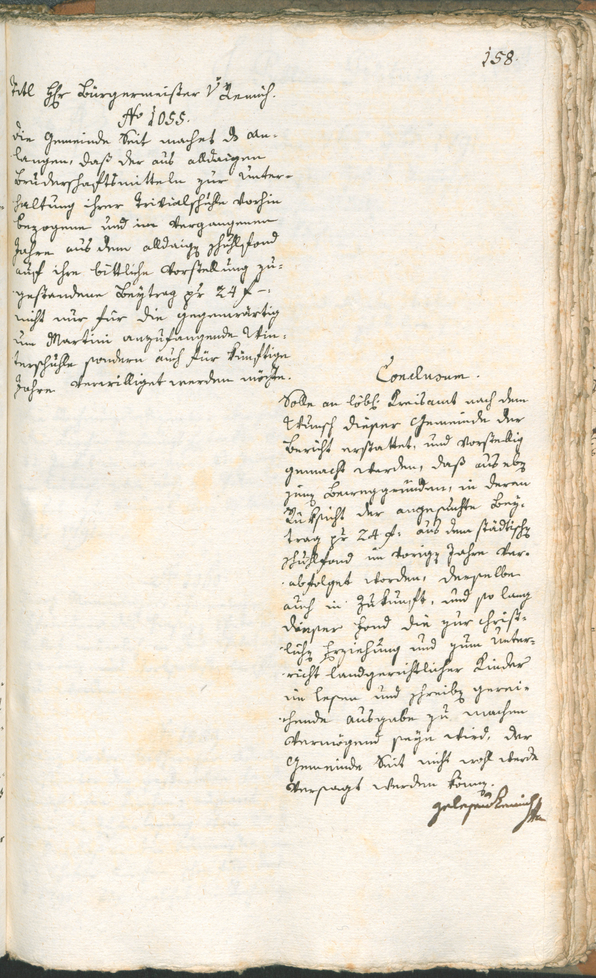 158.
Titl Hr Bürgermeister v Remich.
No 1055.
die Gemeinde Seit machet das An-
langen, daß der aus alldaigen
Bruderschaftsmitteln zur Unter-
haltung ihrer Trivialschule vorhin
bezogene und im vergangenen
Jahre aus dem alldaigen Schulfond
auf ihre bittliche Vorstellung zu-
gestandene Beytrag pr 24 f –
nicht nur für die gegenwärtig
um Martini anzufangende Win-
terschule sondern auch für künftige
Jahre verwilliget werden möchte.
Conclusum.
Solle an löbl. Kreisamt nach dem
Wunsch dieser Gemeinde der
Bericht erstattet, und vorstellig
gemacht werden, daß aus eben
jenen Beweggründen, in deren
Rücksicht der angesuchte Bey-
trag pr 24 f. aus dem städtischen
Schulfond im vorigen Jahre ver-
abfolget worden, derselbe
auch in Zukunft, und so lang
dieser Fond die zur christ-
lichen Erziehung und zum Unter-
richt landgerichtlicher Kinder
im lesen und schreiben gerei-
chende Ausgabe zu machen
vermögend seyn wird, der
Gemeinde Seit nicht wohl werde
versagt werden können.
gelesen Remich